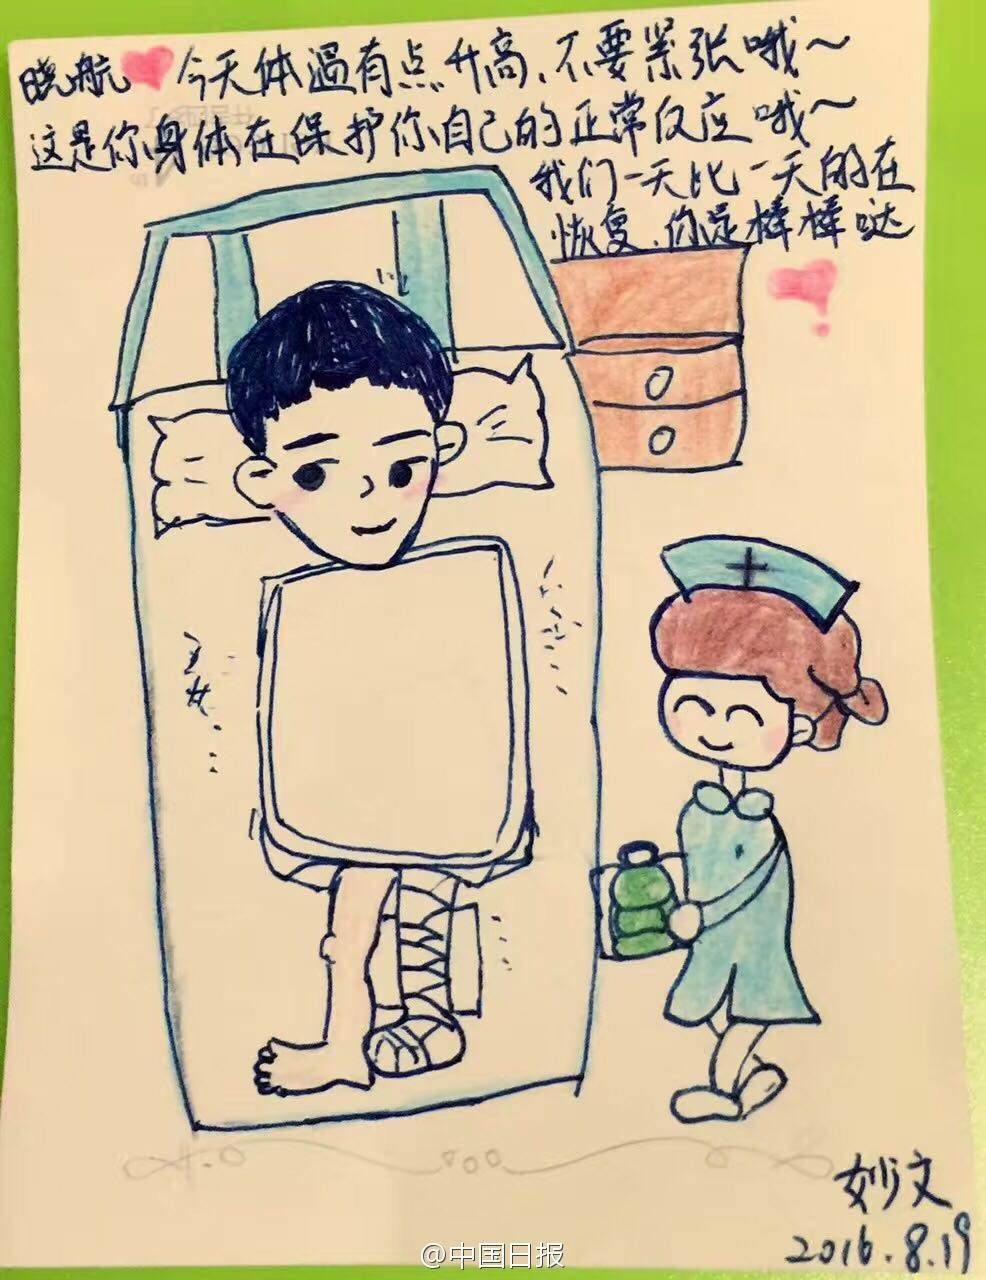 晓航今天体温有点升高、不要紧张哦～
这是你身体在保护你自己的正常反应哦～
我们一天比一天的在
恢复、你是棒棒哒
妙文
2016.8.19
@中国日报